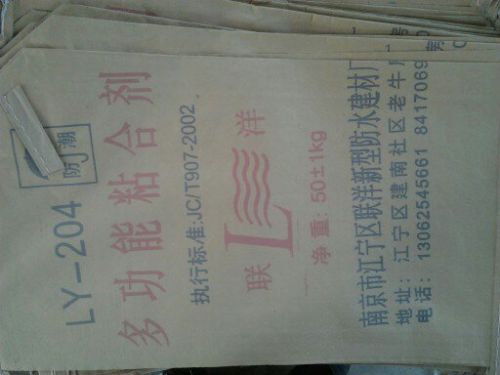 防潮
LY-204
多功能粘合剂
执行标准:JC/T907-2002
联 洋
净重: 50±1kg
南京市江宁区联洋新型防水建材厂
地址: 江宁区建南社区老牛
电话: 13062545661 8417069